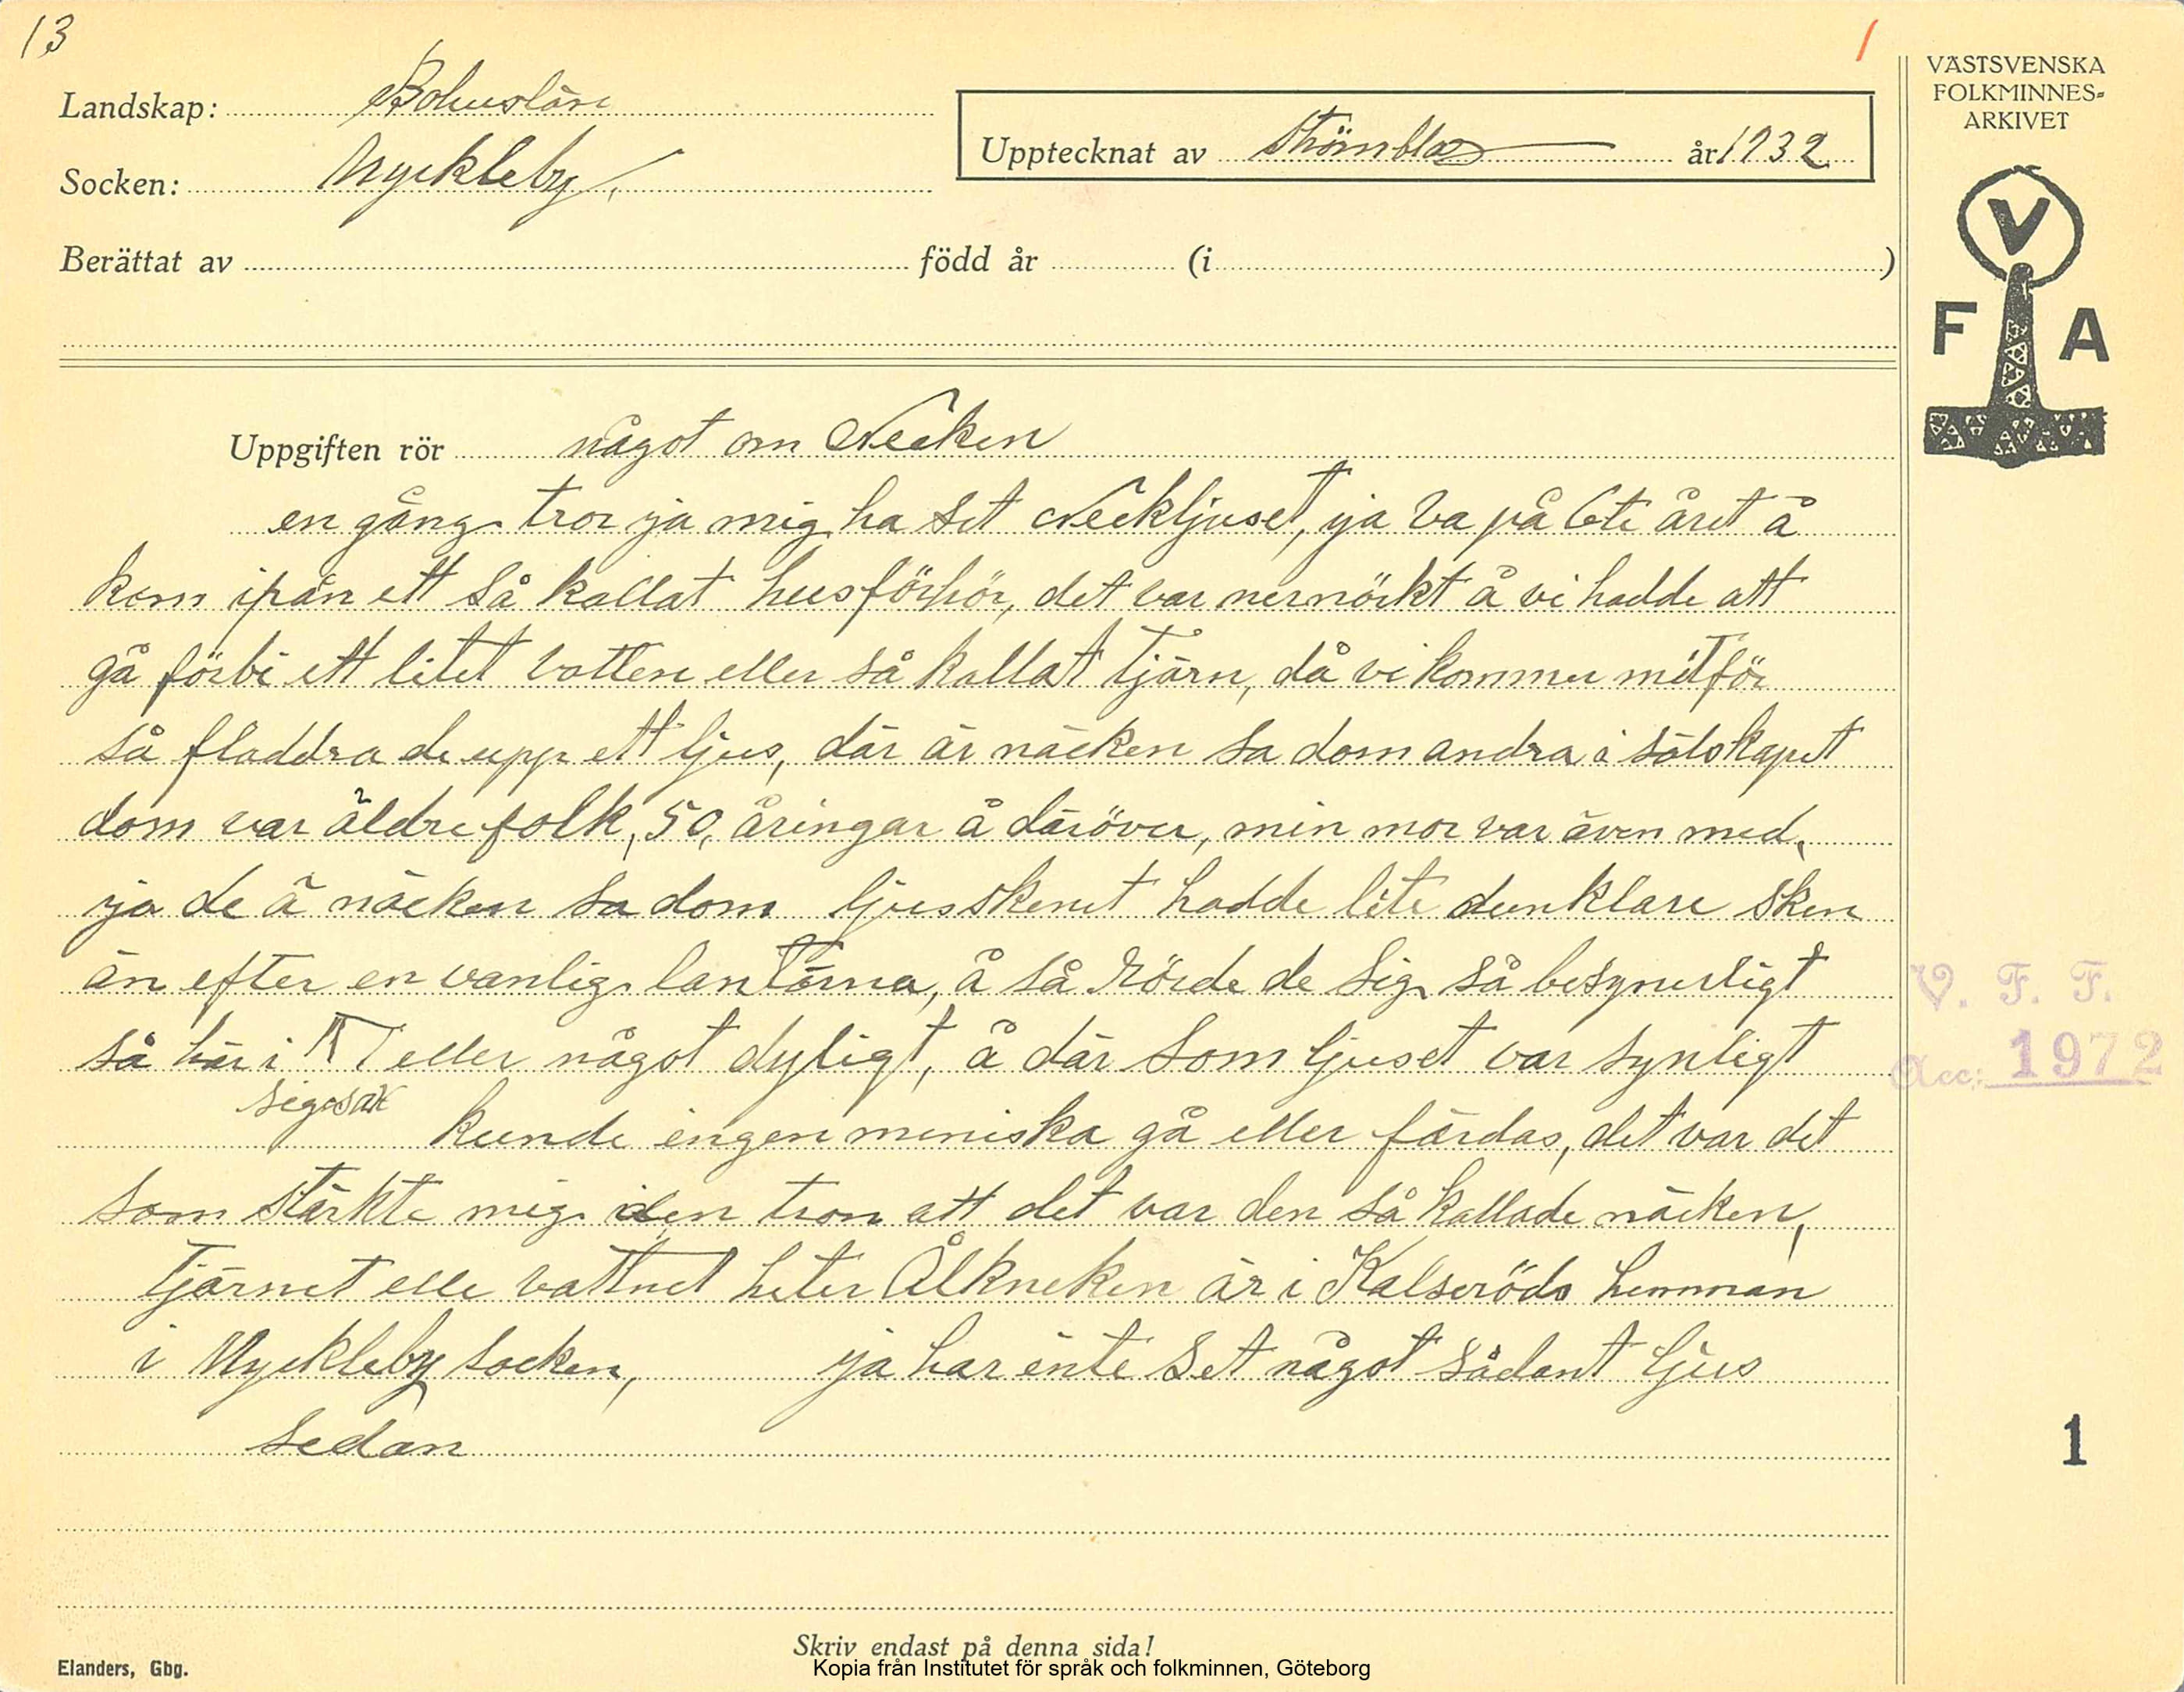 13
Landskap: Bohuslän
Socken: Myckleby
Upptecknat av Strömblad år 1932
Berättat av född år (i )
VÄSTSVENSKA
FOLKMINNES-
ARKIVET
V
F A
Uppgiften rör något om Necken
en gång tror ja mig ha set Neckljuset, ja va på 6te året å
kom ifrån ett så kallat husförhör, det var mernörkt å vi hadde att
gå förbi ett litet vatten eller så kallat tjärn, då vi kommer mitför
så fladdra de upp ett ljus, där är näcken sa dom andra i sälskapet
dom var äldre folk, 50, åringar å däröver, min mor var även med,
ja de ä näcken sa dom ljusskenet hadde lite dunklare sken
än efter en vanlig lantärna, å så rörde de sig så besynerligt
så här i eller något dyligt, å där som ljuset var synligt
sigsak
kunde ingen meniska gå eller färdas, det var det
som stärkte mig i den tron att det var den så kallade näcken,
Tjärnet elle vattnet heter Ålkneken är i Kalseröds hemman
i Myckleby socken, ja har inte set något sådant ljus
sedan
V. F. F.
Acc: 1972
1
Skriv endast på denna sida!
Elanders, Gbg.
Kopia från Institutet för språk och folkminnen, Göteborg